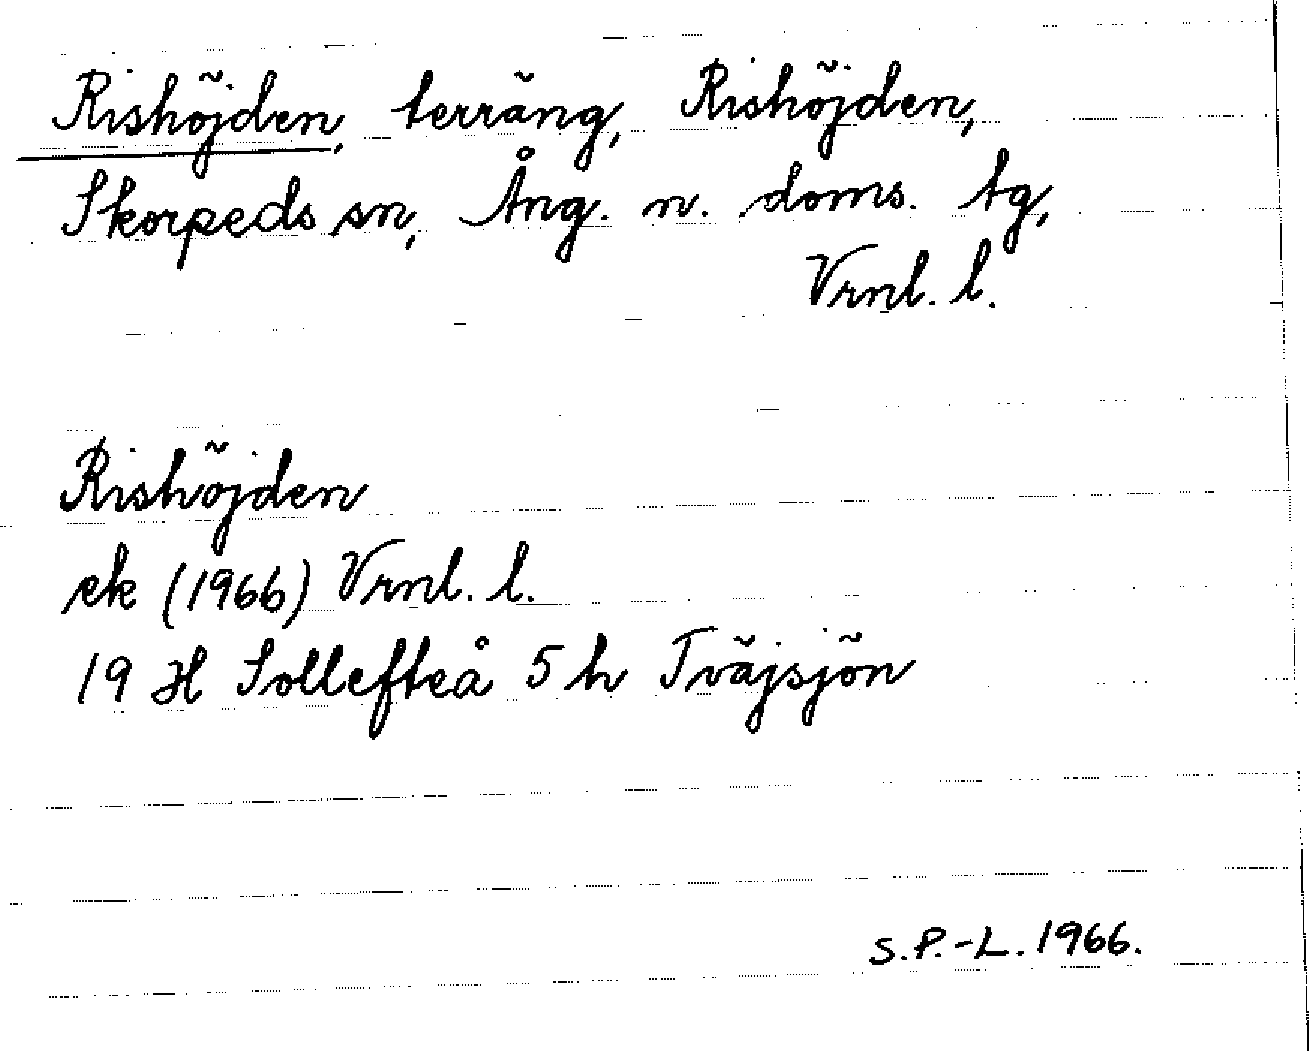 Rishöjden, terräng, Rishöjden,
Skorpeds sn, Ång. n. doms. tg,
Vrnl. l.
Rishöjden
ek (1966) Vrnl. l.
19 H Sollefteå 5 h Tväjsjön
S.P.-L. 1966.